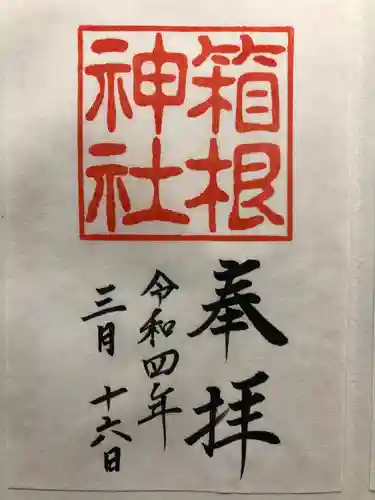 箱根
神社
奉拝
令和四年
三月 十六日